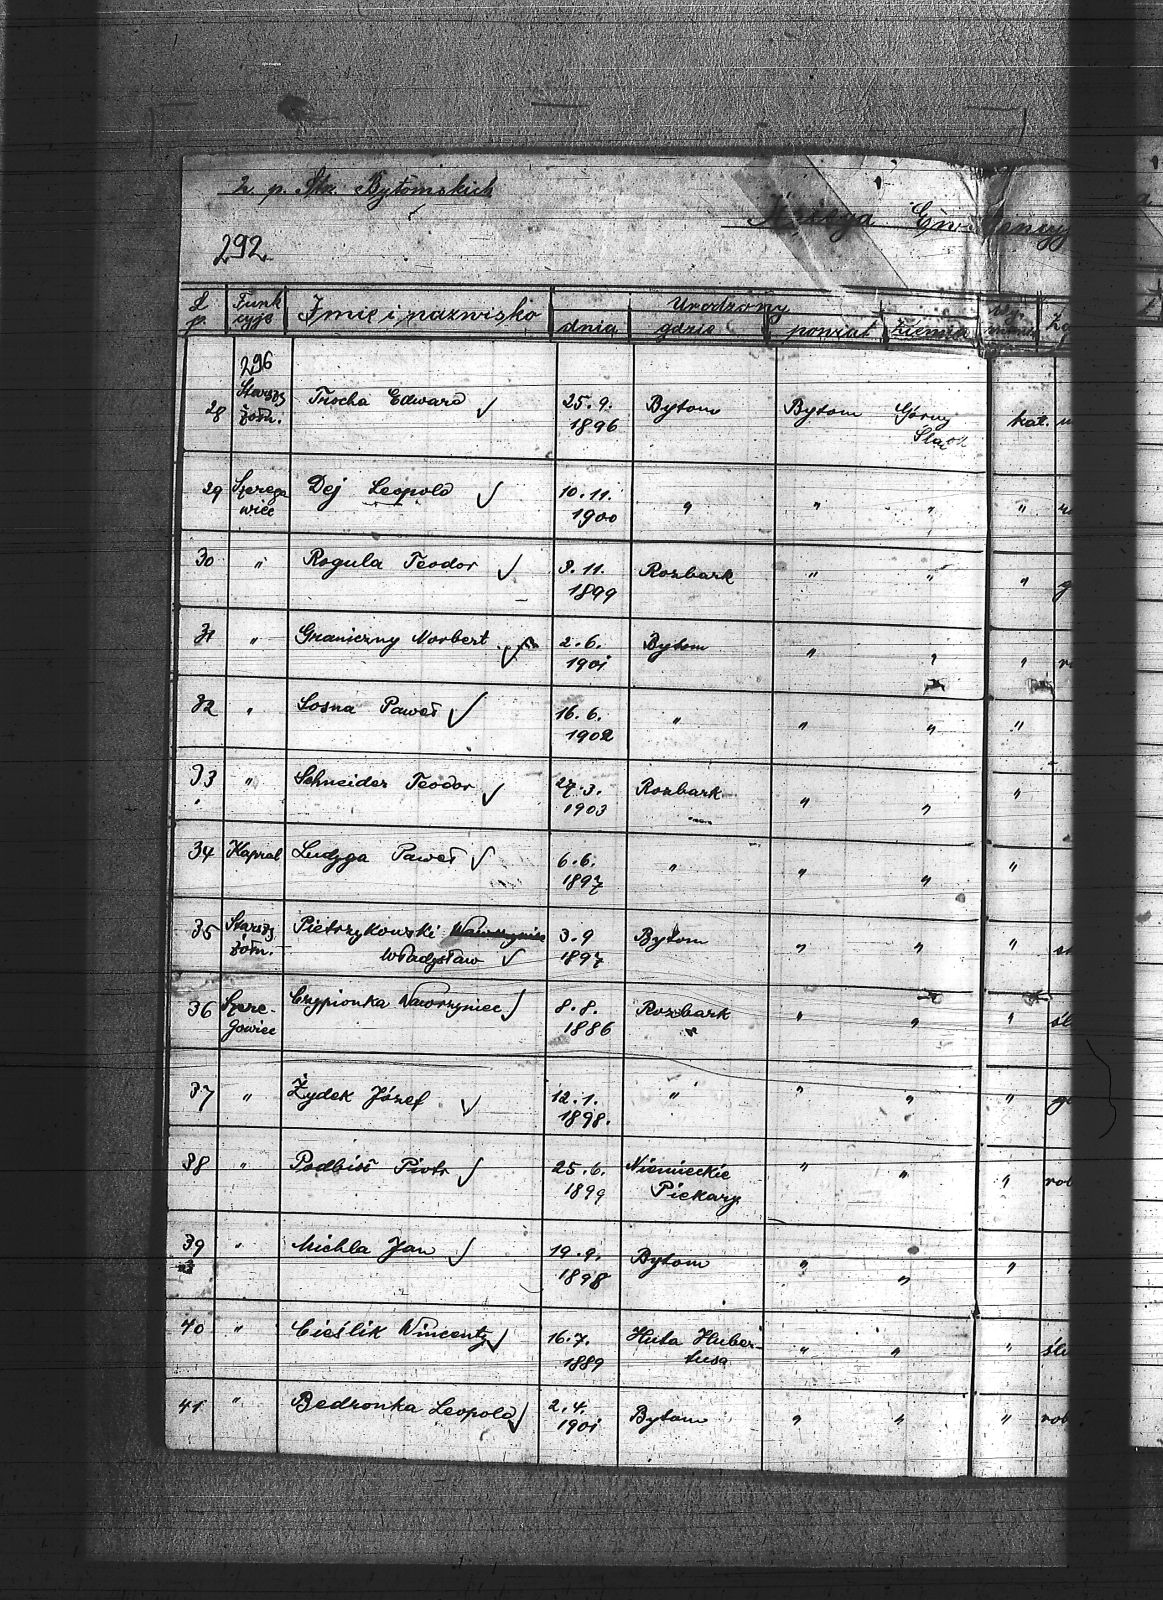 2 p. Strz. Bytomskich
Księga Ewidencyj
292
L. p. Funk cyje Imię i nazwisko Urodzony
dnia gdzie powiat Ziemia
296
28 Starszy żołn. Trocha Edward 25.9. 1896 Bytom Bytom Górny Śląsk kat.
29 Szerego wiec Dej Leopold 10.11. 1900 " " " "
30 " Rogula Teodor 3.11. 1899 Rozbark " " "
31 " Graniczny Norbert 2.6. 1901 Bytom " " "
32 " Sosna Paweł 16.6. 1902 " " " "
33 " Schneider Teodor 27.3. 1903 Rozbark " " "
34 Kapral Ludyga Paweł 6.6. 1897 " " " "
35 Starszy żołn. Pietrzykowski Wawrzyniec 3.9 1897 Bytom " " "
Władysław
36 Szere- gowiec Czypionka Wawrzyniec 8.8. 1886 Rozbark " " "
37 " Żydek Józef 12.1. 1898. " " " "
38 " Podbioł Piotr 25.6. 1899 Niemieckie Piekary " " " rob
39 " Michla Jan 19.9. 1898 Bytom " " "
40 " Cieślik Wincenty 16.7. 1889 Huta Huber- tusa " " "
41 " Bedronka Leopold 2.4. 1901 Bytom " " " rob